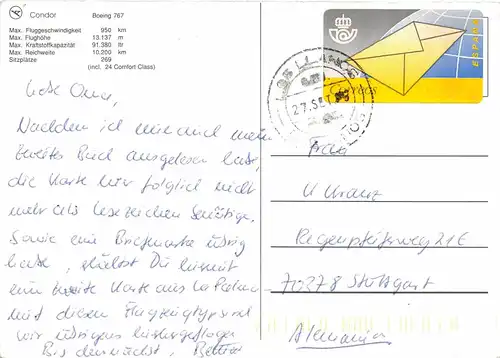 Condor Boeing 767
Max. Fluggeschwindigkeit 950 km
Max. Flughöhe 13.137 m
Max. Kraftstoffkapazität 91.380 ltr
Max. Reichweite 10.200 km
Sitzplätze 269
(incl. 24 Comfort Class)
Liebe Oma,
Nachdem ich nun auch mein
zweites Buch ausgelesen habe,
die Karte hier folglich nicht
mehr als Lesezeichen benötige,
sowie eine Briefmarke übrig
habe, erhältst Du hiermit
eine zweite Karte aus La Palma
mit diesem Flugzeugtyp sind
wir übrigens hierhergeflogen
Bis demnächst,
Correos
ESPAÑA
LOS LLANOS
27.SET
Frau
U Kranz
Regenpfeiferweg 21E
70378 Stuttgart
Alemania